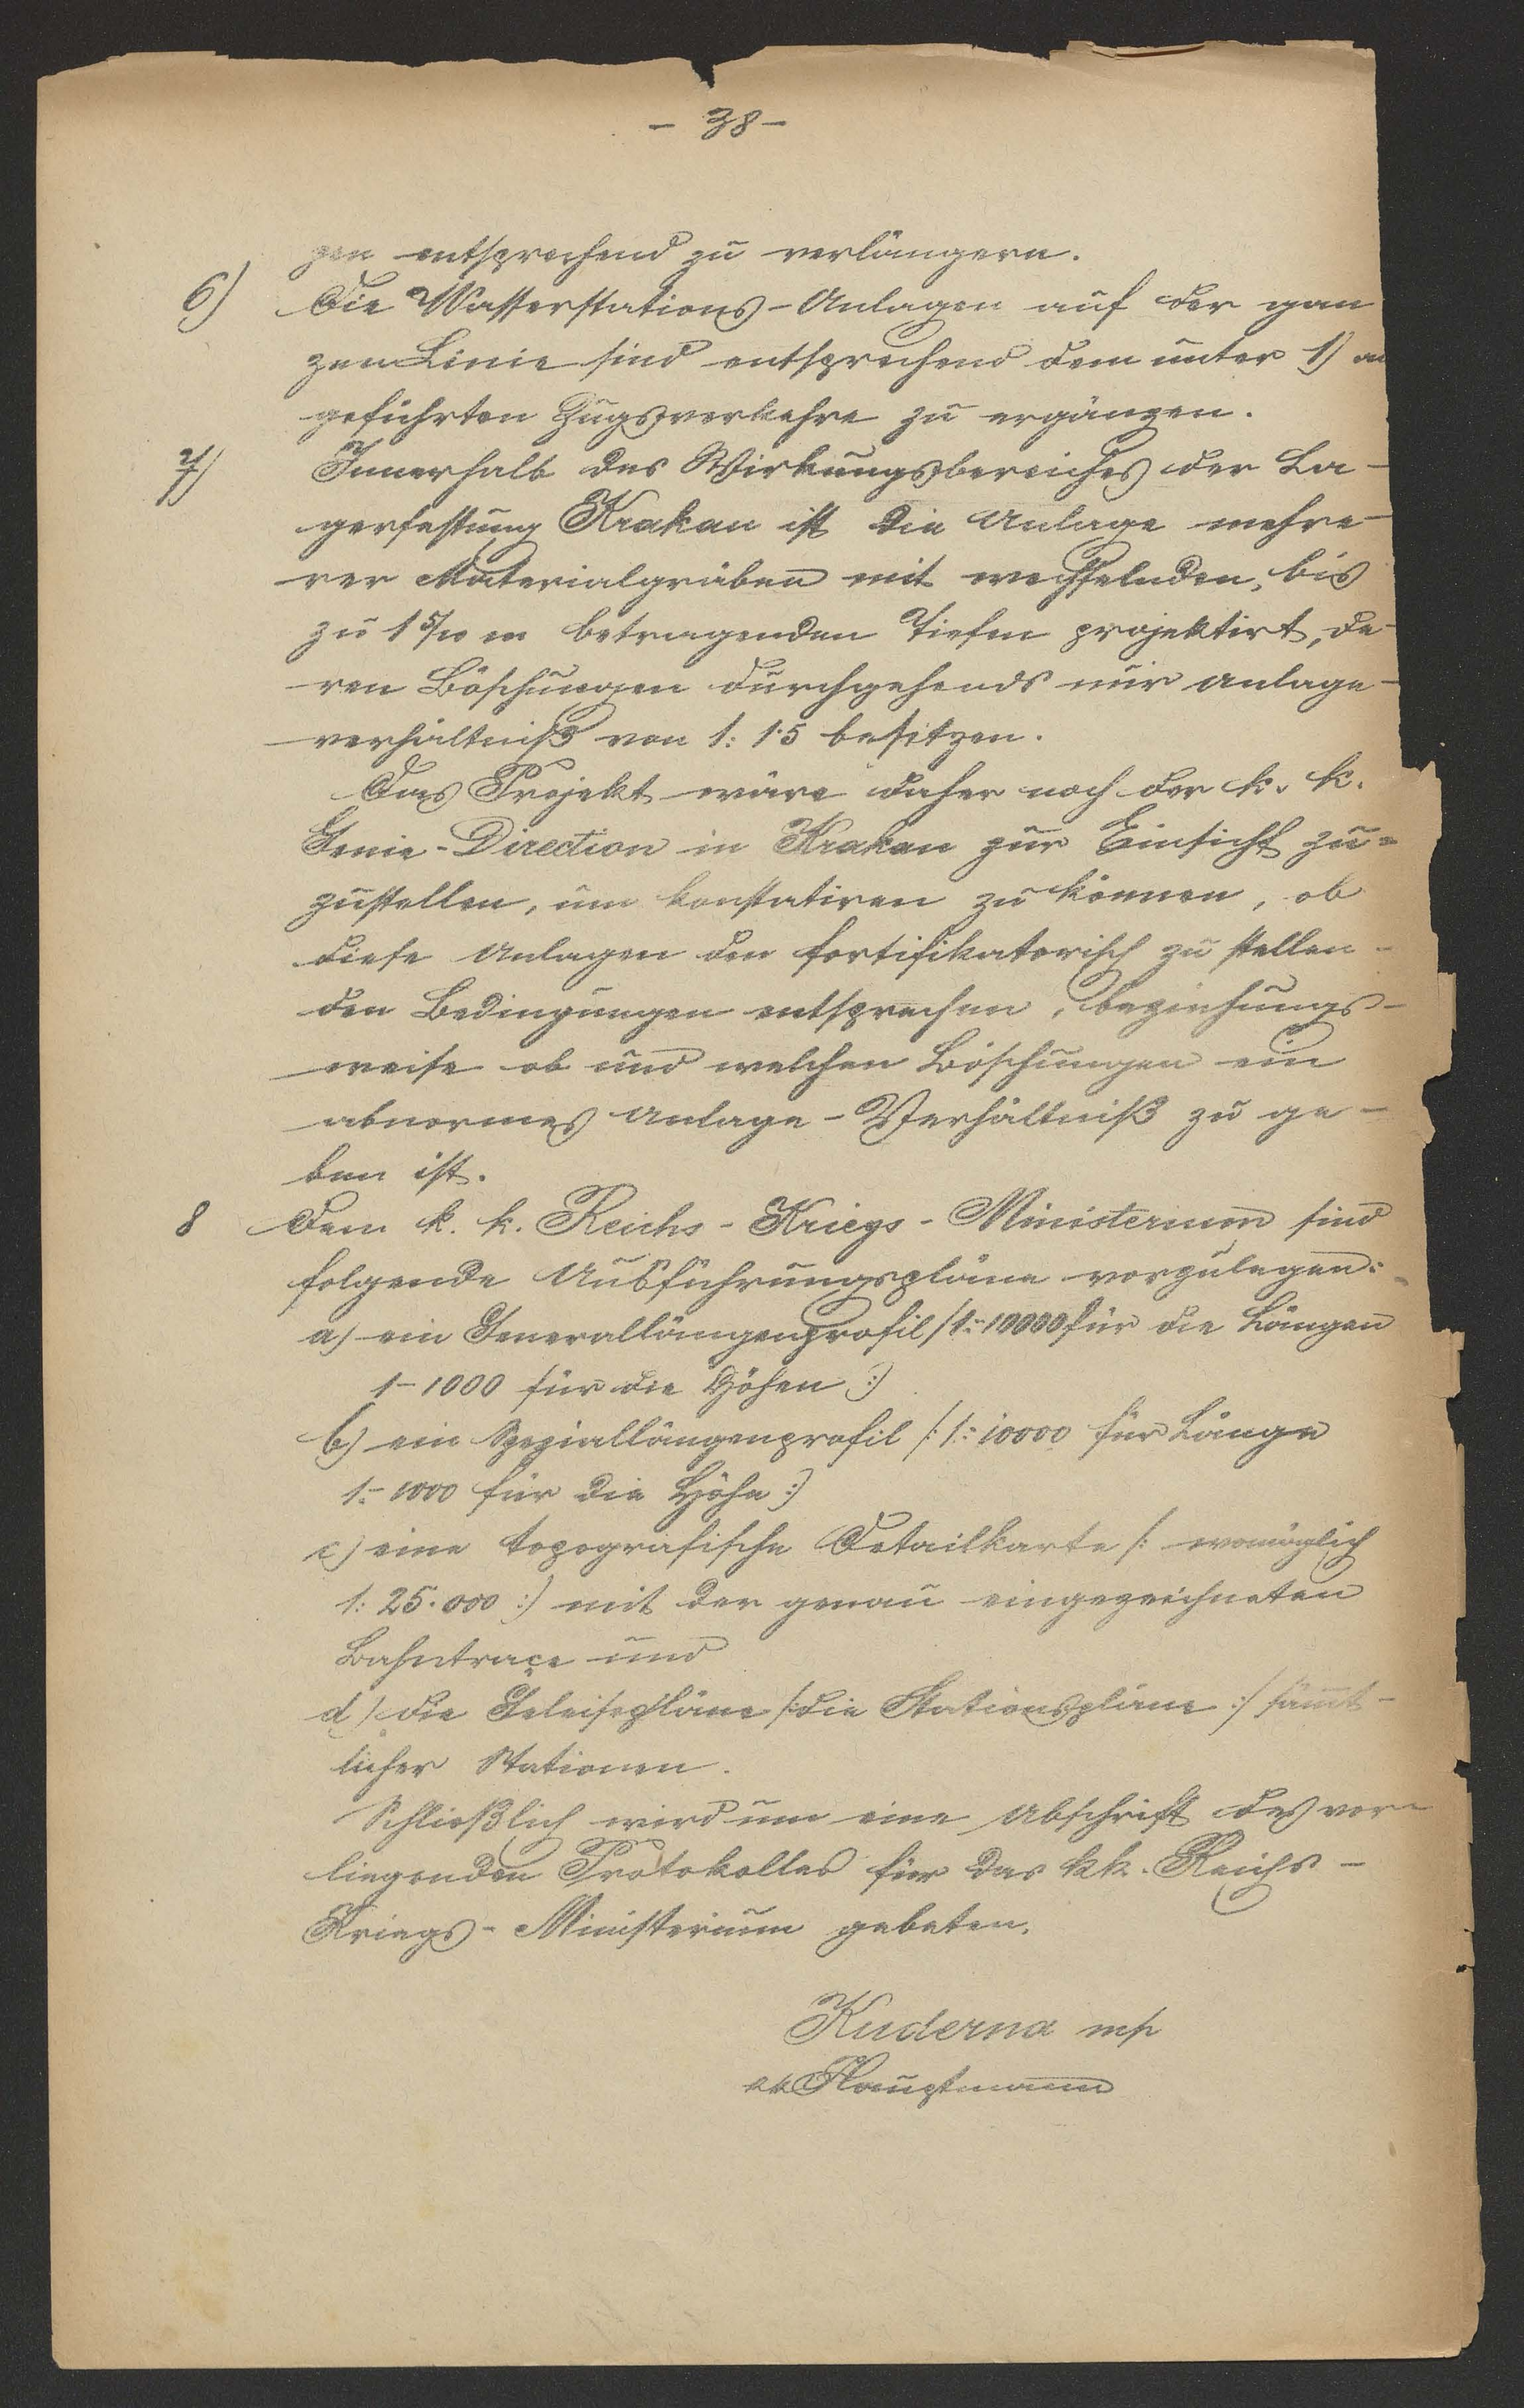 - 38 -
gen entsprechend zu verlängern.
6) Die Wasserstations-Anlagen auf der gan
zen Linie sind entsprechend dem unter 1) an
geführten Zugsverkehre zu ergänzen.
7) Innerhalb des Wirkungsbereiches der La-
gerfestung Krakau ist die Anlage mehre-
rer Materialgräben mit wechselnden, bis
zu 1 5/10 m betragenden Tiefen projektirt, de-
ren Böschungen durchgehends nur Anlage-
verhältniß von 1: 1·5 besitzen.
Das Projekt wäre daher noch der k. k.
Genie-Direction in Krakau zur Einsicht zu=
zustellen, um konstatiren zu können, ob
diese Anlagen den fortifikatorisch zu stellen-
den Bedingungen entsprechen, beziehungs-
weise ob und welchen Böschungen ein
abnormes Anlage-Verhältniß zu ge-
ben ist.
8 Dem k. k. Reichs-Kriegs-Ministerium sind
folgende Ausführungspläne vorzulegen:
a) ein Generallängenprofil /1:10000 für die Längen
1-1000 für die Höhen :)
b) ein Speziallängenprofil /: 1: 10000 für Länge
1:- 1000 für die Höhe :)
c) eine topografische Detailkarte /: womöglich
1: 25.000 :) mit der genau eingezeichneten
Bahntraçe und
d) die Geleisepläne /: die Stationspläne :/ sämmt-
licher Stationen.
Schließlich wird um eine Abschrift des vor-
liegenden Protokolles für das kk. Reichs-
Kriegs-Ministerium gebeten.
Kuderna mp
kk Hauptmann